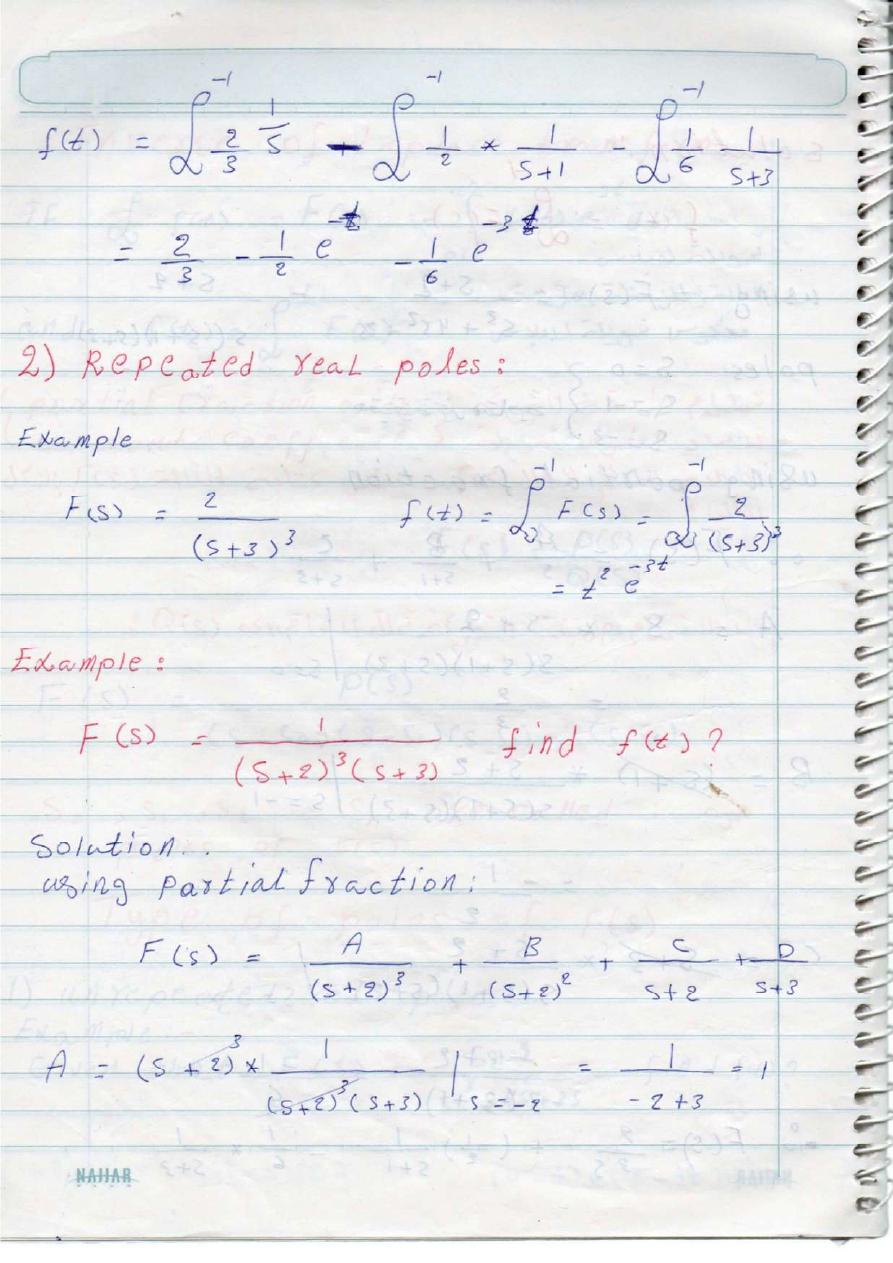 f(t) = ℒ⁻¹ 2/3 1/S - ℒ⁻¹ 1/2 * 1/(S+1) - ℒ⁻¹ 1/6 1/(S+3)
= 2/3 - 1/2 e^-t - 1/6 e^-3t
2) Repeated real poles:
Example
F(S) = 2/(S+3)³ f(t) = ℒ⁻¹ F(S) = ℒ⁻¹ 2/(S+3)³
= t² e^-3t
Example:
F(S) = 1/((S+2)³(S+3)) find f(t)?
Solution..
using partial fraction:
F(S) = A/(S+2)³ + B/(S+2)² + C/(S+2) + D/(S+3)
A = (S+2)³ * 1/((S+2)³(S+3)) | S=-2 = 1/(-2+3) = 1
NAJJAR